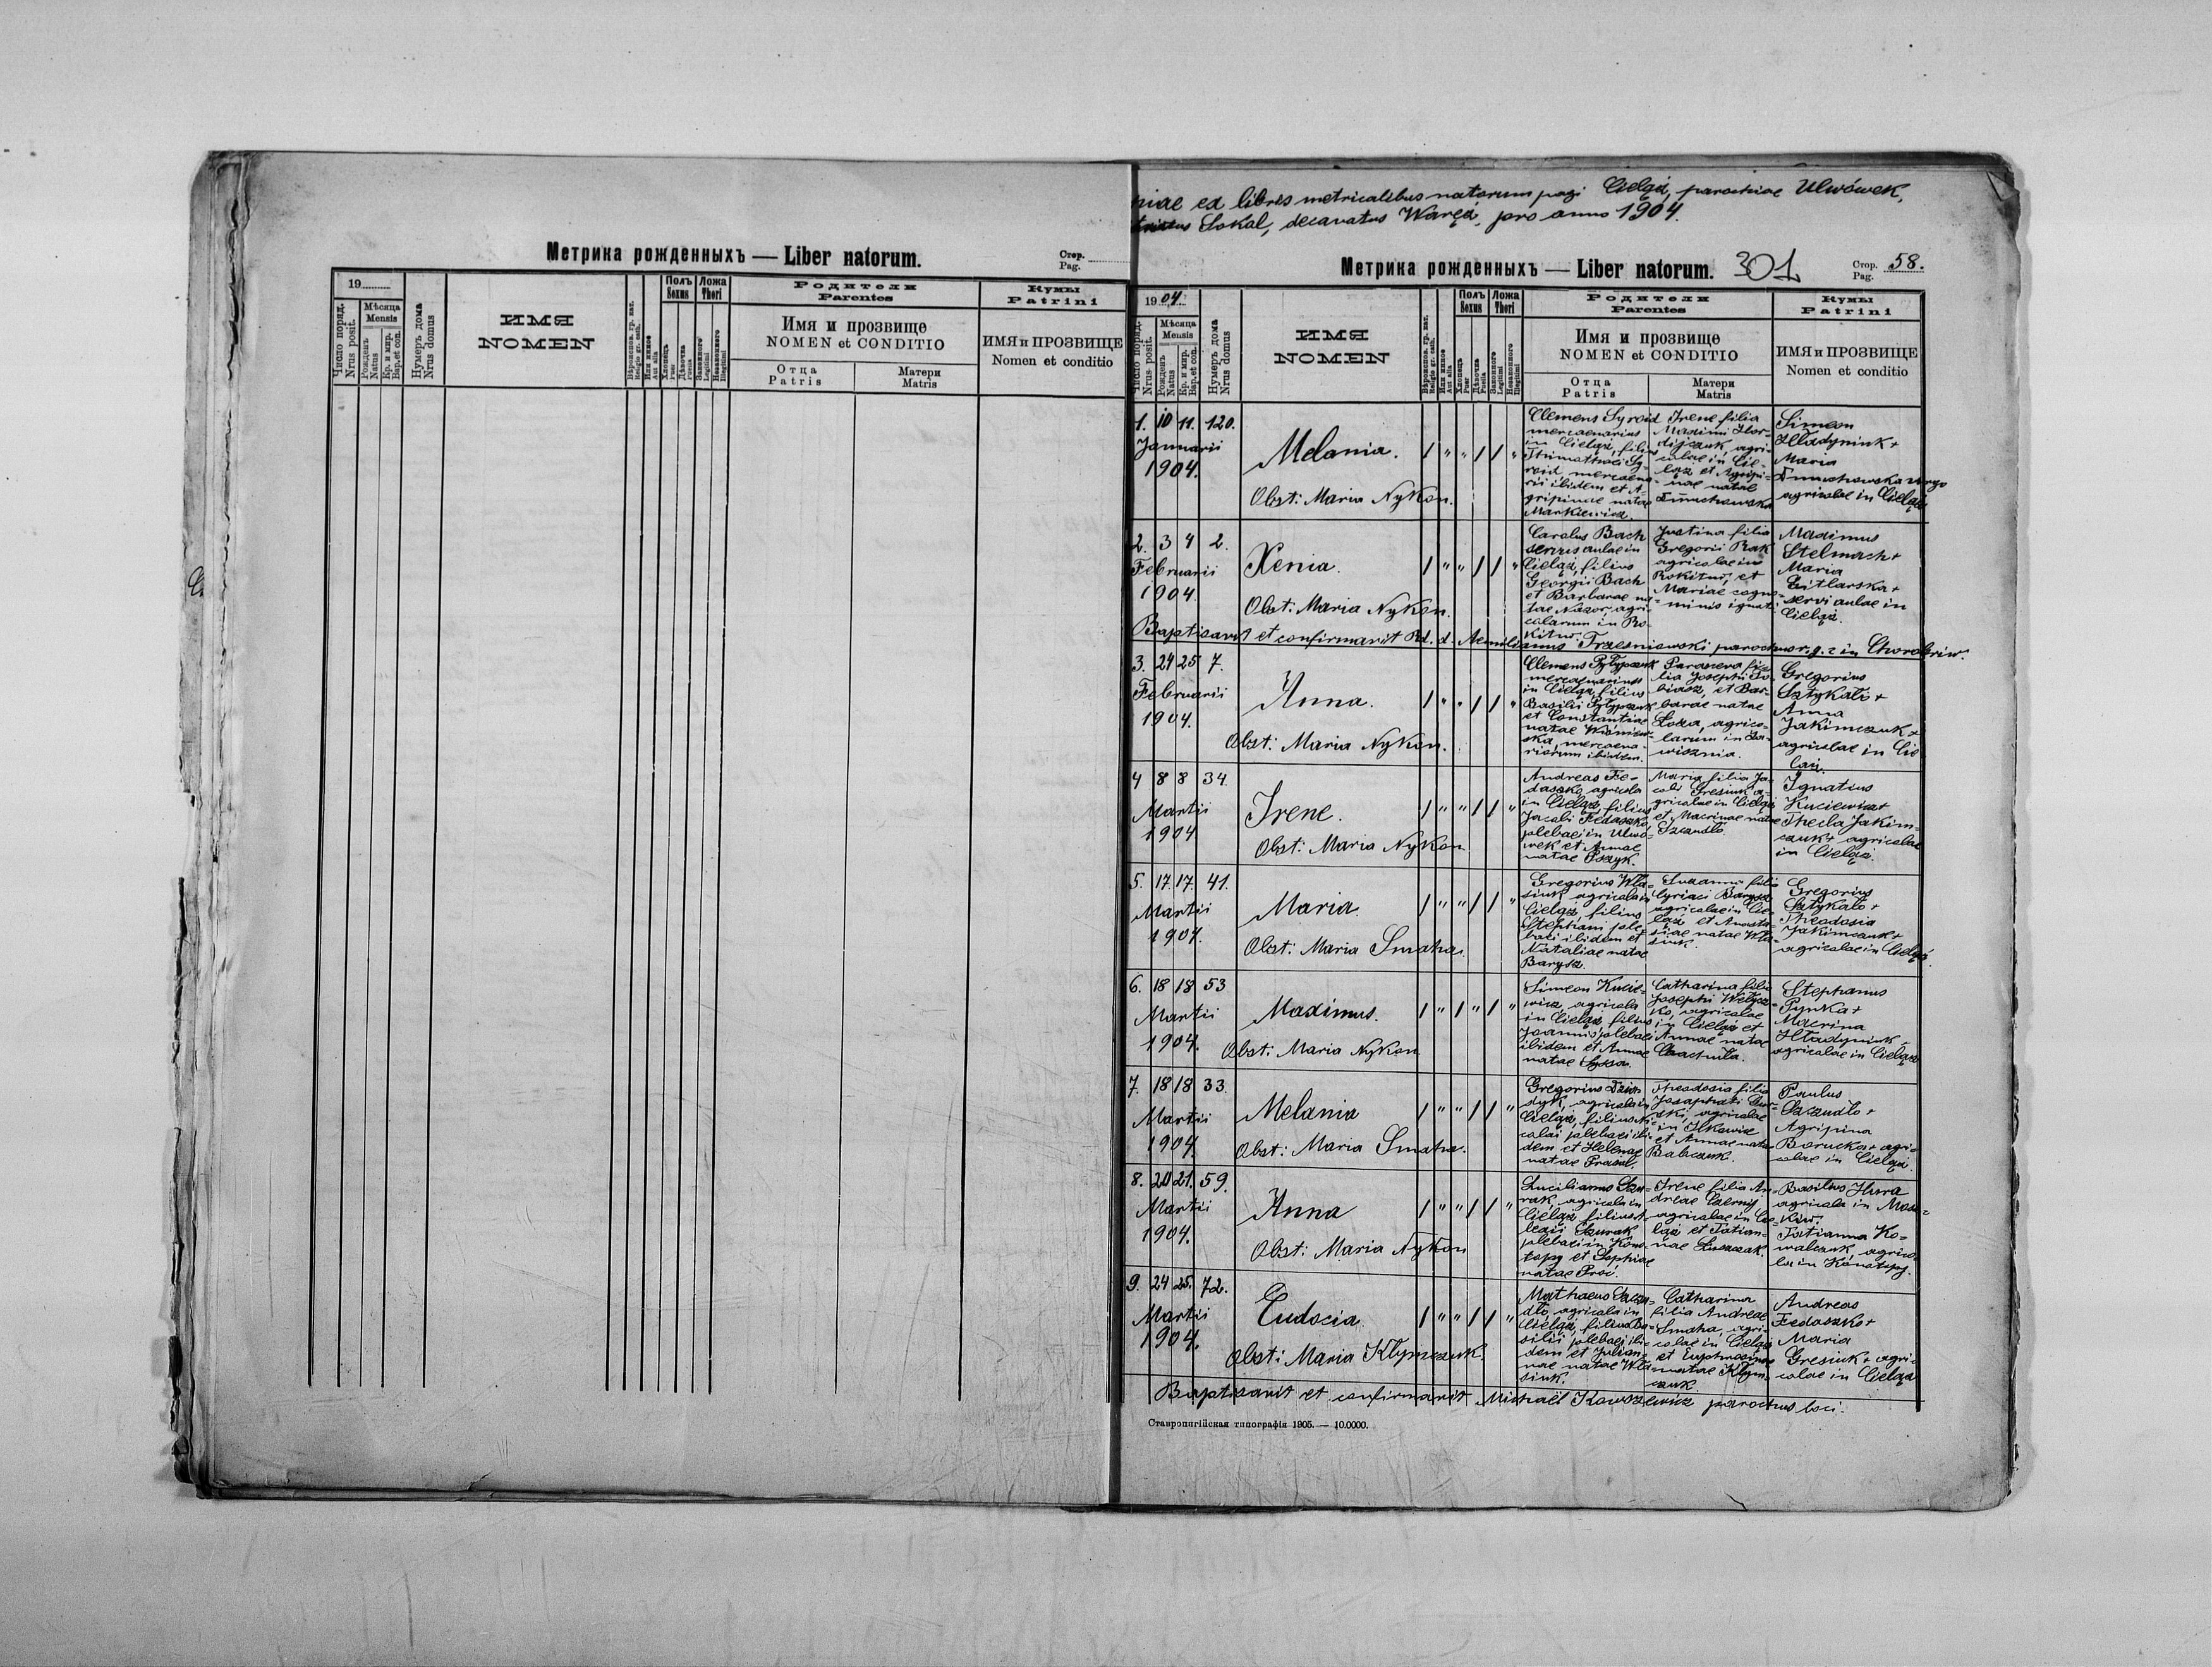 Метрика рожденныхъ — Liber natorum.
Стор.
Pag.
19
Число поряд.
Nrus posit.
Мѣсяца
Mensis
Рожденъ
Natus
Кр. и мир.
Bap. et con.
Нумеръ дома
Nrus domus
ИМЯ
NOMEN
Полъ
Sexus
Ложа
Thori
Родители
Parentes
Имя и прозвище
NOMEN et CONDITIO
Отца
Patris
Матери
Matris
Кумы
Patrini
ИМЯ и ПРОЗВИЩЕ
Nomen et conditio
ex libris metricalibus natorum pagi Cieląż, parochiae Ulwówek,
Sokal, decanatus Waręż, pro anno 1904.
Метрика рожденныхъ — Liber natorum.
301
Стор.
Pag. 58.
1904
Число поряд.
Nrus posit.
Мѣсяца
Mensis
Рожденъ
Natus
Кр. и мир.
Bap. et con.
Нумеръ дома
Nrus domus
ИМЯ
NOMEN
Полъ
Sexus
Ложа
Thori
Родители
Parentes
Имя и прозвище
NOMEN et CONDITIO
Отца
Patris
Матери
Matris
Кумы
Patrini
ИМЯ и ПРОЗВИЩЕ
Nomen et conditio
1. 10 11. 120.
Januarii
1904.
Melania.
Obst: Maria Nykon.
Clemens Syroid
mercenarius
in Cieląż, filius
ibidem et A-
gripinae natae
Markiewicz.
Irene filia
Maximi Hor-
dijczuk, agri-
colae in Cie-
ląż et Agripi-
nae natae
Simeon
Hładyniuk +
Maria
virgo
agricolae in Cieląż
2. 3 4 2.
Februarii
1904
Xenia.
Obst: Maria Nykon.
Carolus Bach
servus aulae in
Cieląż, filius
Georgii Bach
et Barbarae na-
tae Nazor, agri-
colarum in Ro-
kitno.
Justina filia
Gregorii Rak
agricolae in
et
Mariae cogno-
minis ignoti
Maximus
Stelmach +
Maria
servi aulae in
Cieląż.
Baptisavit et confirmavit Rd. d. Aemilianus Trzesniowski parochus r. g. c. in Chorobriw.
3. 24 25 7.
Februarii
1904.
Anna.
Obst: Maria Nykon.
Clemens Pyłypczuk
mercenarius
in Cieląż, filius
Basilii Pyłypczuk
et Constantiae
natae Wiśniew-
ska, mercena-
riorum ibidem.
Parasceva fi-
lia Josephi
et Bar-
barae natae
Łoza, agrico-
larum in Za-
wisznia.
Gregorius
Sztykało +
Anna
Jakimczuk +
agricolae in Cie-
ląż.
4 8 8 34.
Martii
1904
Irene.
Obst: Maria Nykon
Andreas Fe-
daszko agricola
in Cieląż, filius
Jacobi Fedaszko,
plebaei in Ulwó-
wek et Annae
natae Pszyk.
Maria filia Ja-
cobi Gresiuk a-
gricolae in Cieląż
et Macrinae natae
Szczudło.
Ignatius
Kuciewicz +
Thecla Jakim-
czuk + agricolae
in Cieląż.
5. 17. 17. 41.
Martii
1904.
Maria
Obst: Maria Smaha.
Gregorius Wła-
siuk agricola in
Cieląż, filius
Stephani ple-
baei ibidem et
Nataliae natae
Barysz.
Susanna filia
Cyriaci Barysz
agricolae in Cie-
ląż et Anasta-
siae natae Wła-
siuk.
Gregorius
Sztykało +
Theodosia
Jakimczuk +
agricolae in Cieląż.
6. 18 18 53
Martii
1904.
Maximus.
Obst: Maria Nykon
Simeon Kucie-
wicz, agricola
in Cieląż filius
Joannis plebaei
ibidem et Annae
natae Syssa.
Catharina filia
Josephi Wełycz-
ko, agricolae
in Cieląż et
Annae natae
Stephanus
Pynka +
Macrina
Hładyniuk
agricolae in Cieląż
7. 18 18 33.
Martii
1904.
Melania
Obst: Maria Smaha.
Gregorius
agricola in
Cieląż, filius Ni-
colai plebaei ibi-
dem et Helenae
natae
Theodosia filia
Josaphati
agricolae
in Ilkowice
et Annae natae
Babczuk.
Paulus
Szczudło +
Agripina
Borucka + agri-
colae in Cieląż.
8. 20 21. 59.
Martii
1904.
Anna
Obst: Maria Nykon
agricola in
Cieląż filius
plebaei in Kono-
topy et Sophiae
natae Proć.
Irene filia An-
dreae Czernij
agricolae in Cie-
ląż et Tatian-
nae
Basilius Hura
agricola in
Tatianna Ko-
walczuk, agrico-
la in Konotopy.
9. 24 25. 72.
Martii
1904.
Eudocia.
Obst: Maria Kłymczuk.
Mathaeus Szczu-
dło, agricola in
Cieląż, filius Ba-
silii plebaei ibi-
dem et Julian-
nae natae Wła-
siuk.
Catharina
filia Andreae
Smaha, agri-
colae in Cieląż
et Euphrosinae
natae Kłym-
czuk.
Andreas
Fedaszko +
Maria
Gresiuk + agri-
colae in Cieląż
Baptisavit et confirmavit Michael Kowszewicz parochus loci.
Ставропигійская типографія 1905. — 10.0000.